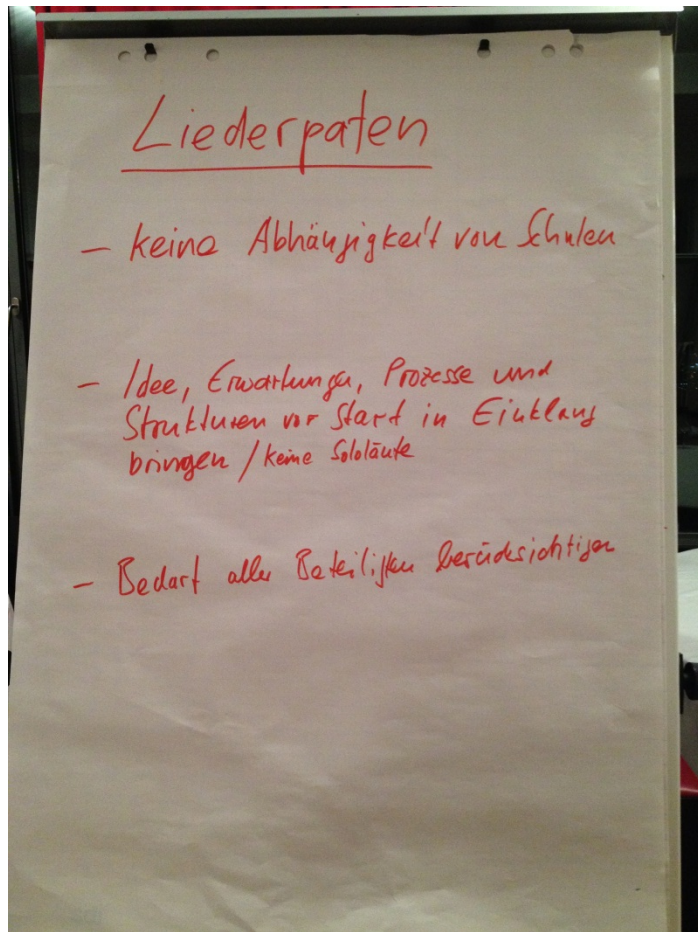 Liederpaten
- keine Abhängigkeit von Schulen
- Idee, Erwartungen, Prozesse und
Strukturen vor Start in Einklang
bringen / keine Sololäufe
- Bedarf aller Beteiligten berücksichtigen